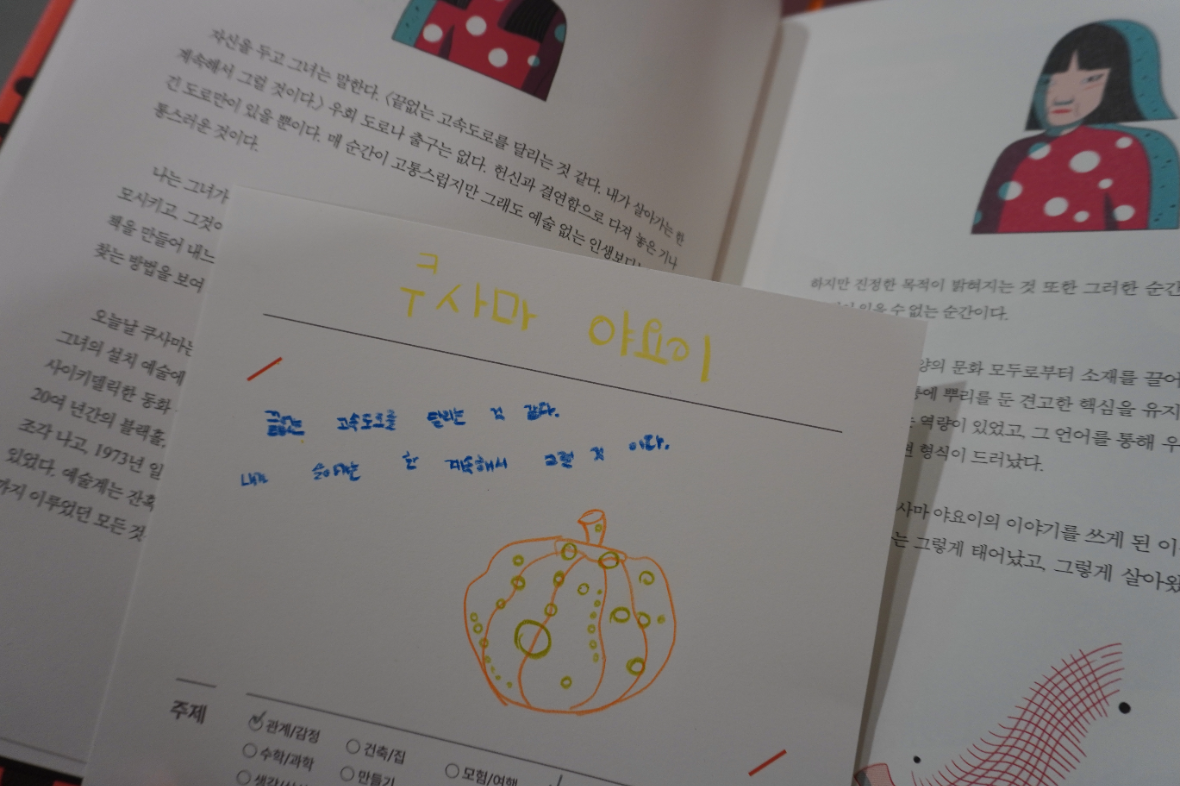 자신을 두고 그녀는 말한다. 〈끝없는 고속도로를 달리는 것 같다. 내가 살아가는 한
계속해서 그럴 것이다.〉 우회 도로나 출구는 없다. 헌신과 결연함으로 다져 놓은 기나
긴 도로만이 있을 뿐이다. 매 순간이 고통스럽지만 그래도 예술 없는 인생보다
통스러운 것이다.
나는 그녀가
모시키고, 그것이
해을 만들어 내느
찾는 방법을 보여
오늘날 쿠사마는
그녀의 설치 예술에
사이키델릭한 동화
20여 년간의 블랙홀,
조각 나고, 1973년 일
있었다. 예술계는 잔혹
까지 이루었던 모든 것
쿠사마 야요이
끝없는 고속도로를 달리는 것 같다.
내가 살아가는 한 계속해서 그럴 것 이다.
주제
관계/감정
건축/집
수학/과학
만들기
모험/여행
하지만 진정한 목적이 밝혀지는 것 또한 그러한 순간
있을 수 없는 순간이다.
양의 문화 모두로부터 소재를 끌어
층에 뿌리를 둔 견고한 핵심을 유지
는 역량이 있었고, 그 언어를 통해 우
현 형식이 드러났다.
사마 야요이의 이야기를 쓰게 된 이
는 그렇게 태어났고, 그렇게 살아왔